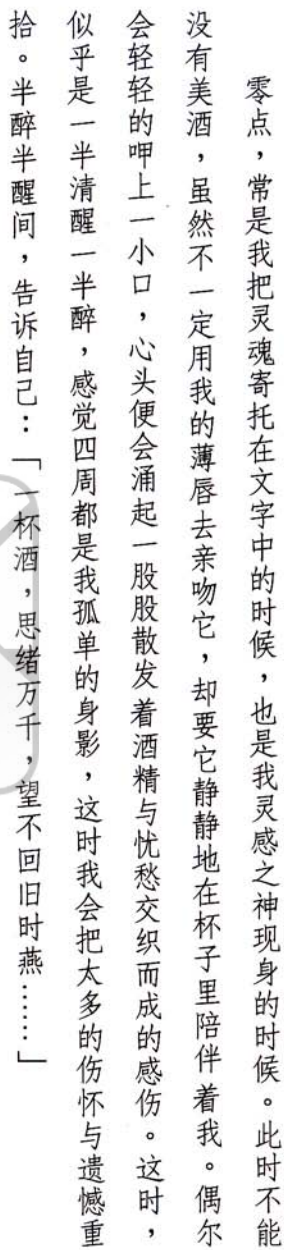 零点，常是我把灵魂寄托在文字中的时候，也是我灵感之神现身的时候。此时不能
没有美酒，虽然不一定用我的薄唇去亲吻它，却要它静静地在杯子里陪伴着我。偶尔
会轻轻的呷上一小口，心头便会涌起一股股散发着酒精与忧愁交织而成的感伤。这时，
似乎是一半清醒一半醉，感觉四周都是我孤单的身影，这时我会把太多的伤怀与遗憾重
拾。半醉半醒间，告诉自己：「一杯酒，思绪万千，望不回旧时燕……」